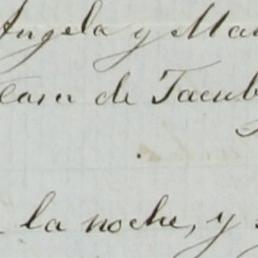 Angela y Ma
Casa de Tacub
la noche, y